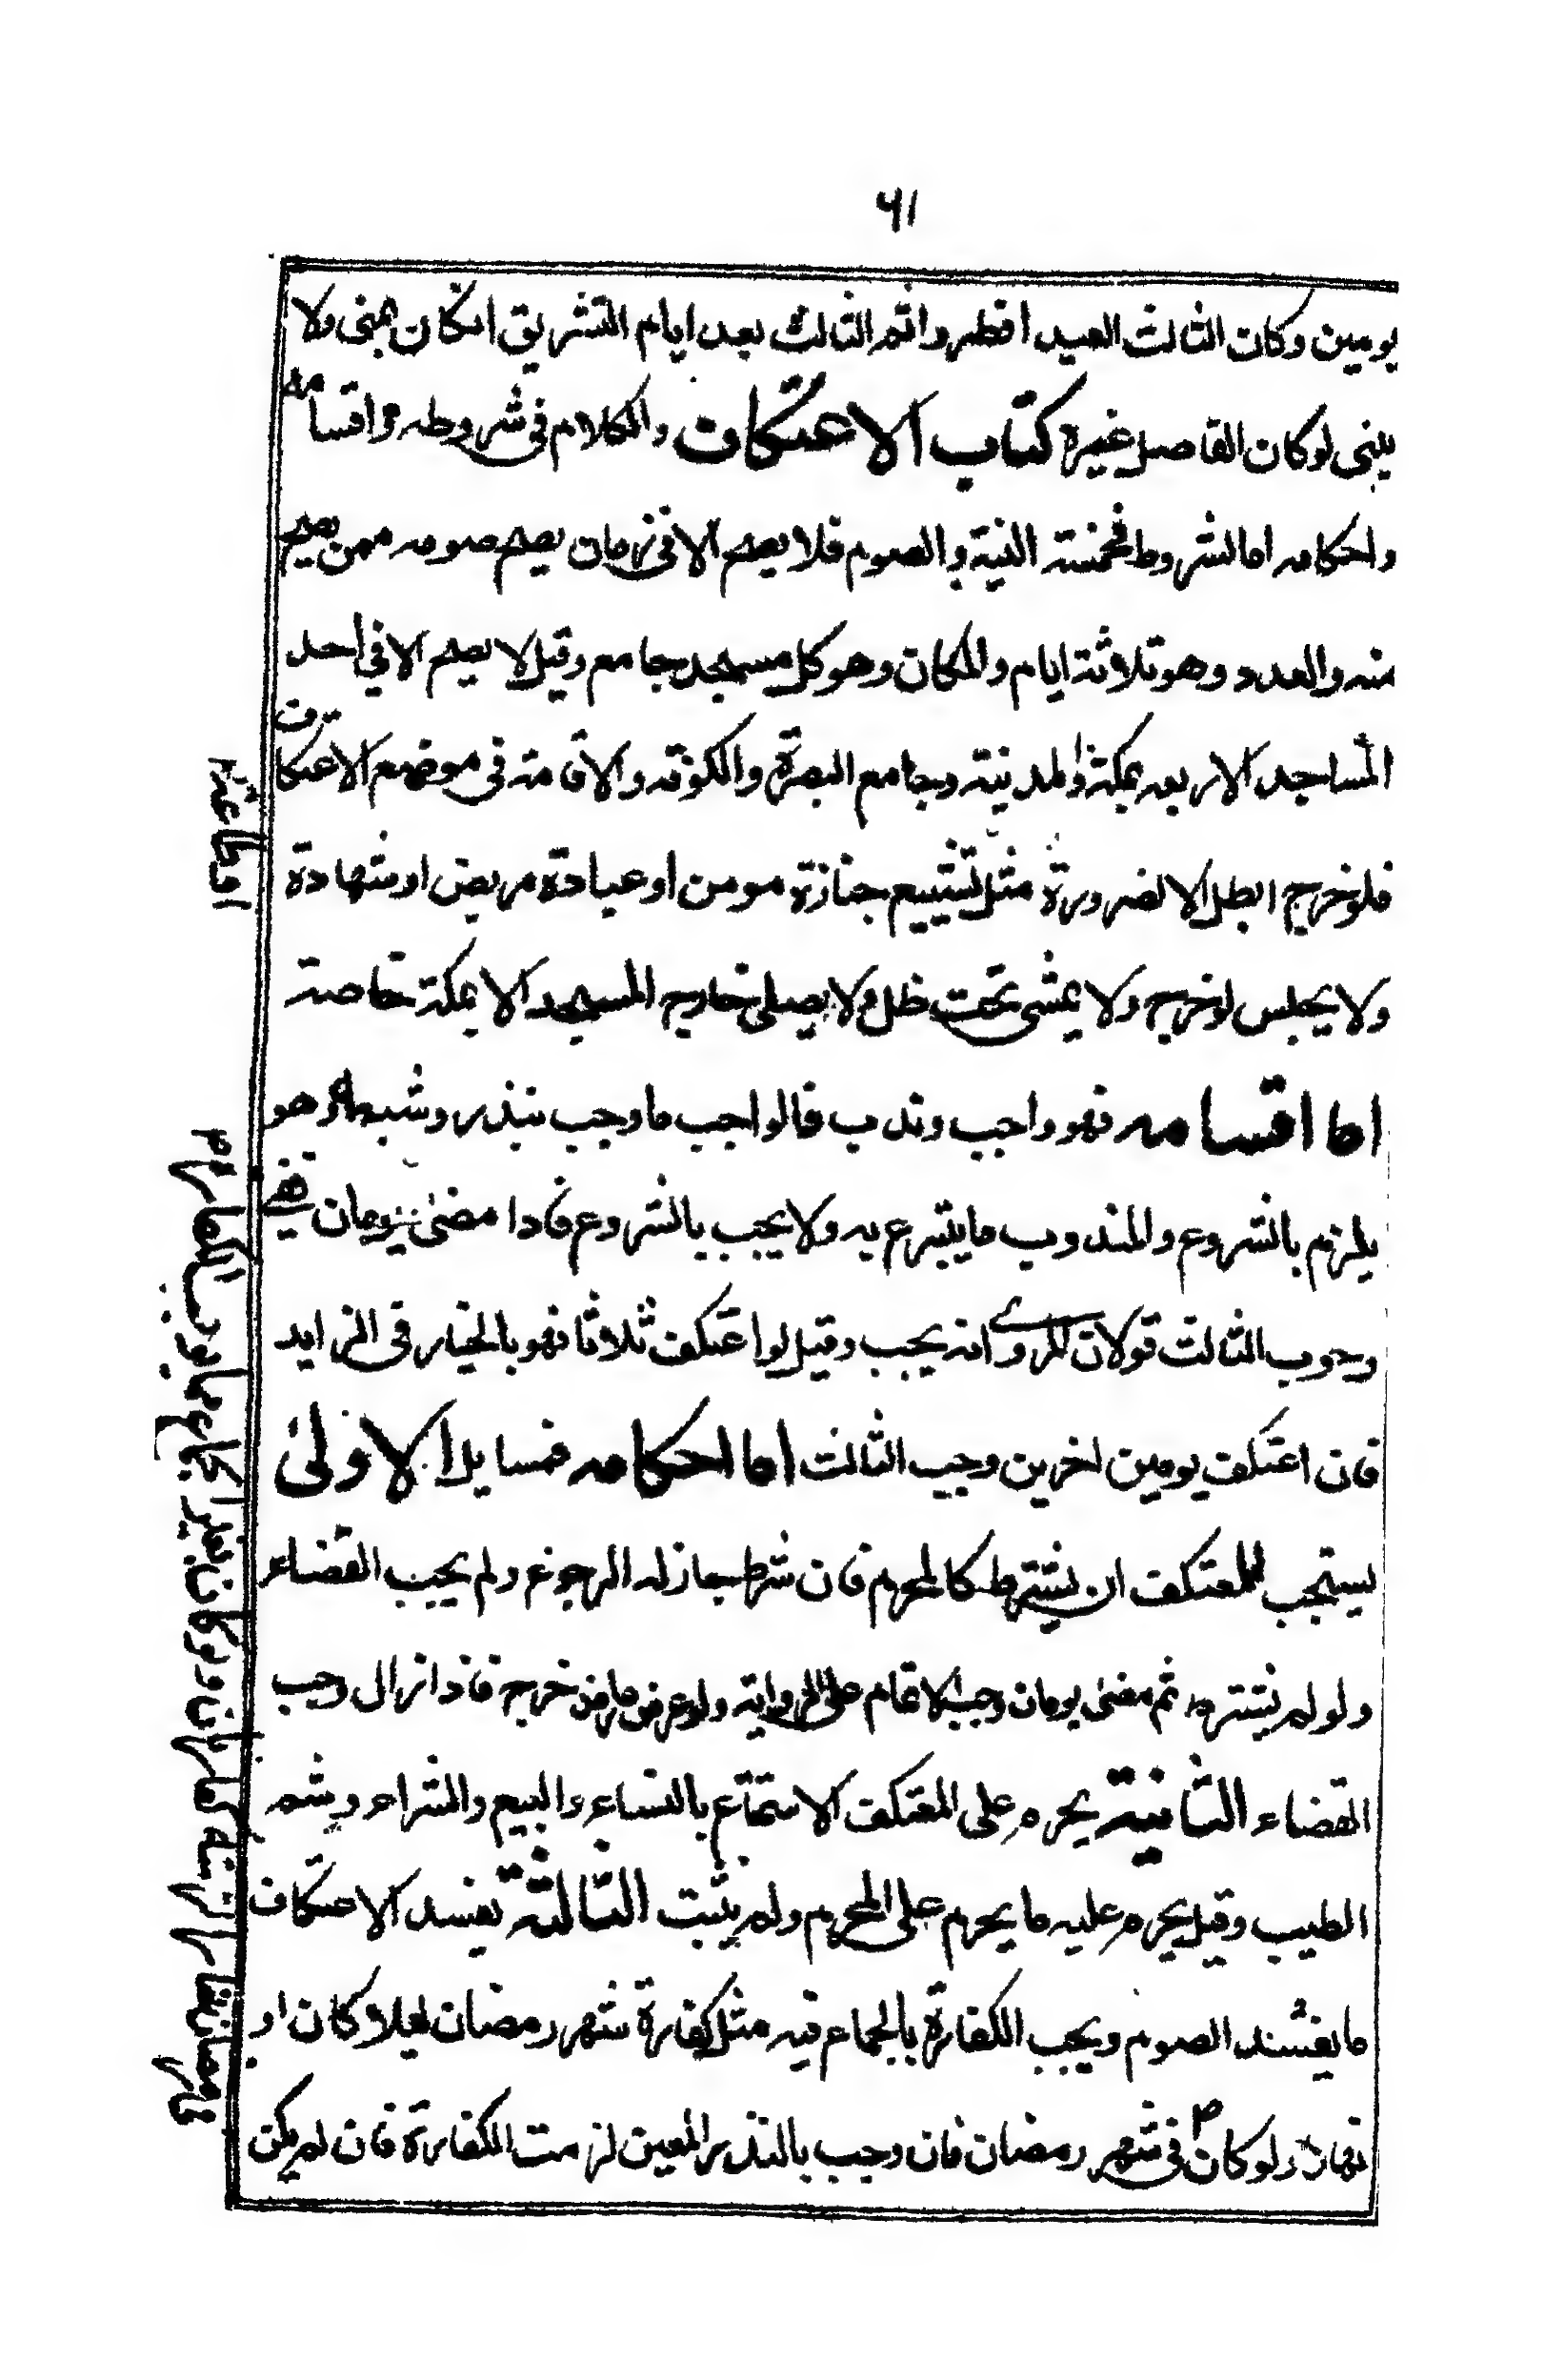 ٦١
يومين وكان الثالث العيد افطر واتم الثالث بعد ايام التشريق انكان بمنى ولا
يبنى لوكان الفاصل غيره كتاب الاعتكاف والكلام فى شروطه واقسامه
واحكامه اما الشروط فخمسته النية والصوم فلا يصح الا فى زمان يصح صومه ممن يصح
منه والعدد وهو ثلاثة ايام والمكان وهو كل مسجد جامع وقيل لا يصح الا فى احد
المساجد الاربعه بمكة والمدينة وجامع البصرة والكوفه والاقامة فى موضع الاعتكاف
فلو خرج ابطل الا لضرورة مثل تشييع جنازة مومن او عيادة مريض او شهادة
ولا يجلس لو خرج ولا يمشى تحت ظل ولا يصلى خارج المسجد الا بمكة خاصة
اما اقسامه فهو واجب وندب فالواجب ما وجب بنذر وشبهه وهو
يلزم بالشروع والمندوب ما يتبرع به ولا يجب بالشروع فاذا مضى يومان ففى
وجوب الثالث قولان المروى انه يجب وقيل لو اعتكف ثلاثا فهو بالخيار فى الزايد
فان اعتكف يومين اخرين وجب الثالث اما احكامه فمسايل الاولى
يستحب للمعتكف ان يشترط كالمحرم فان شرط جاز له الرجوع ولم يجب القضاء
ولو لم يشترط ثم مضى يومان وجب الاتمام على الرواية ولو عرض عارض خرج فاذا زال وجب
القضاء الثانية يحرم على المعتكف الاستمتاع بالنساء والبيع والشراء وشم
الطيب وقيل يحرم عليه ما يحرم على المحرم ولم يثبت الثالثة يفسد الاعتكاف
ما يفسد الصوم ويجب الكفارة بالجماع فيه مثل كفارة شهر رمضان ليلا كان او
نهارا ولو كان فى شهر رمضان فان وجب بالنذر المعين لزمت الكفارة فان لم يكن